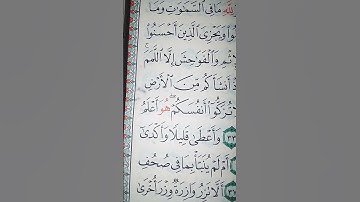 لِلَّهِ مَا فِي السَّمَٰوَٰتِ وَمَا
وَيَجْزِيَ الَّذِينَ أَحْسَنُوا
وَالْفَوَاحِشَ إِلَّا اللَّمَمَ
أَنشَأَكُم مِّنَ الْأَرْضِ
تُزَكُّوا أَنفُسَكُمْ هُوَ أَعْلَمُ
٣٣ وَأَعْطَىٰ قَلِيلًا وَأَكْدَىٰ
أَمْ لَمْ يُنَبَّأْ بِمَا فِي صُحُفِ
أَلَّا تَزِرُ وَازِرَةٌ وِزْرَ أُخْرَىٰ